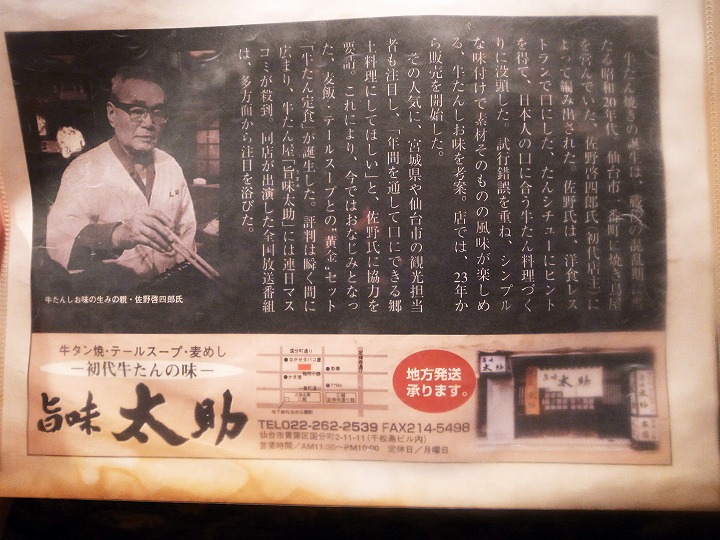 牛たん焼きの誕生は、戦後の混乱期
たる昭和20年代、仙台市一番町に焼き鳥屋
を営んでいた、佐野啓四郎氏(初代店主)に
よって編み出された。佐野氏は、洋食レス
トランで口にした、たんシチューにヒント
を得て、日本人の口に合う牛たん料理づく
りに没頭した。試行錯誤を重ね、シンプル
な味付けで素材そのものの風味が楽しめ
る、牛たんしお味を考案。店では、23年か
ら販売を開始した。
その人気に、宮城県や仙台市の観光担当
者も注目し、「年間を通して口にできる郷
土料理にしてほしい」と、佐野氏に協力を
要請。これにより、今ではおなじみとなっ
た、麦飯・テールスープとの"黄金"セット
「牛たん定食」が誕生した。評判は瞬く間に
広まり、牛たん屋「旨味太助」には連日マス
コミが殺到。同店が出演した全国放送番組
は、多方面から注目を浴びた。
牛たんしお味の生みの親・佐野啓四郎氏
牛タン焼・テールスープ・麦めし
―初代牛たんの味―
旨味 太助
地方発送
承ります。
TEL022-262-2539 FAX214-5498
仙台市青葉区国分町2-11-11(千松島ビル内)
営業時間/AM11:30~PM10:00 定休日/月曜日
国分町通り
一番町通り
旨味
太助